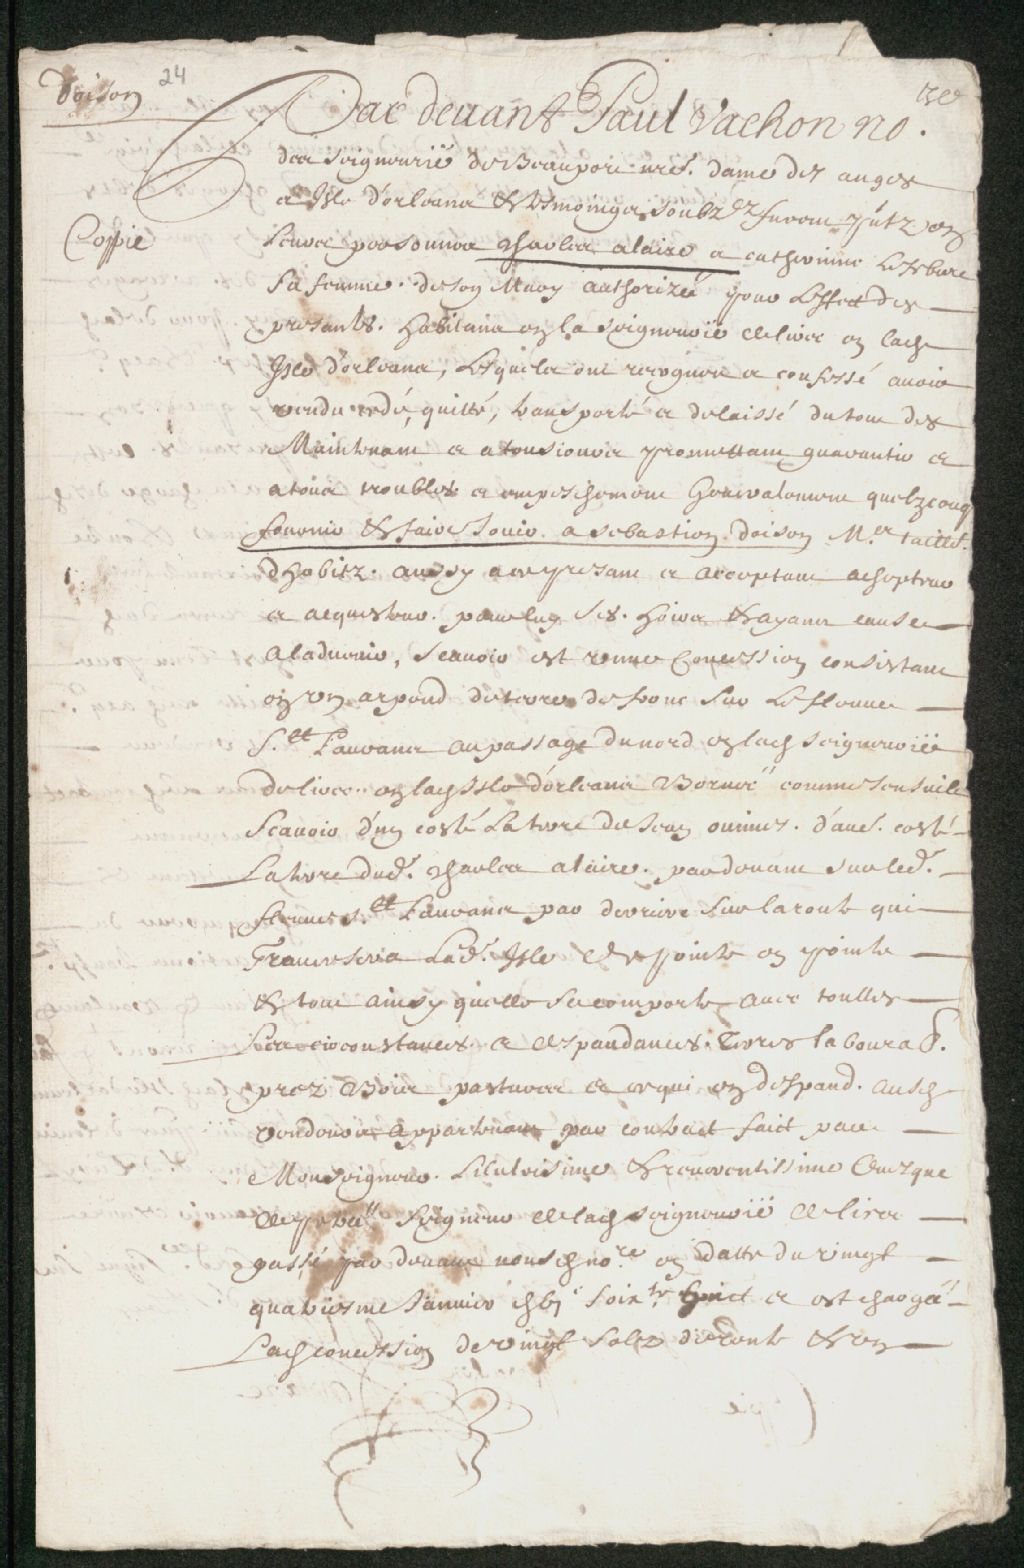 Doison 24
Par devant Paul Vachon no.re
des Seigneurie de Beauport nre. dame des anges
et Isle d'orleans & tesmoings soubz.ez furent p̃ntz en
Coppie
leurs personnes Charles alaire et catherinne Lefebure
sa femme. de son Mary authorizée pour L'effect des
presantes. habitans en la Seigneurie de lirec en lad.
Isle d'orleans, Lesquels ont recognu et confessé avoir
vendu ceddé, quitté, transporté et delaissé du tout des
Maintenant et a tousiours promettant garantir et
a tous troubles et empeschement Generalement quelzconq
fournir & faire Jouir a sebastien doison M.e taille.
d'habitz. aussy a ce presant et acceptant achepteur
et acquesteur. pour luy ses. hoirs & ayans cause
a ladvenir, Scavoir est une Concession consistant
en un arpend de terre de front sur Le fleuve
S.et Laurans au passage du nord en lad Seigneurie
de lirec en lad Isle d'orleans Bornée comme sensuit
Scavoir d'un costé La terre de Jean ouimet. d'aut. costé
La terre dud. Charles alaire. par devant sur led.
fleuve S.et Laurans par derriere sur la route qui
Traversera Lad. Isle de pointe en pointe
& tout ainsy quelle se comporte avec touttes
ses circonstances et despandances. Terres labourab.
prez Bois pastures et ce qui en despand. ausd
vendeurs appartenant par contract faict par
Monseigneur. Lillutrisime & reverentissime Evesque
de petrée Seigneur de lad Seigneurie de lirec
passé par devant nousd no.re en datte du vingt
quatriesme Janvier gbj.c soix.te huict et est chargé
Lad concession de vingt solz de rente & un